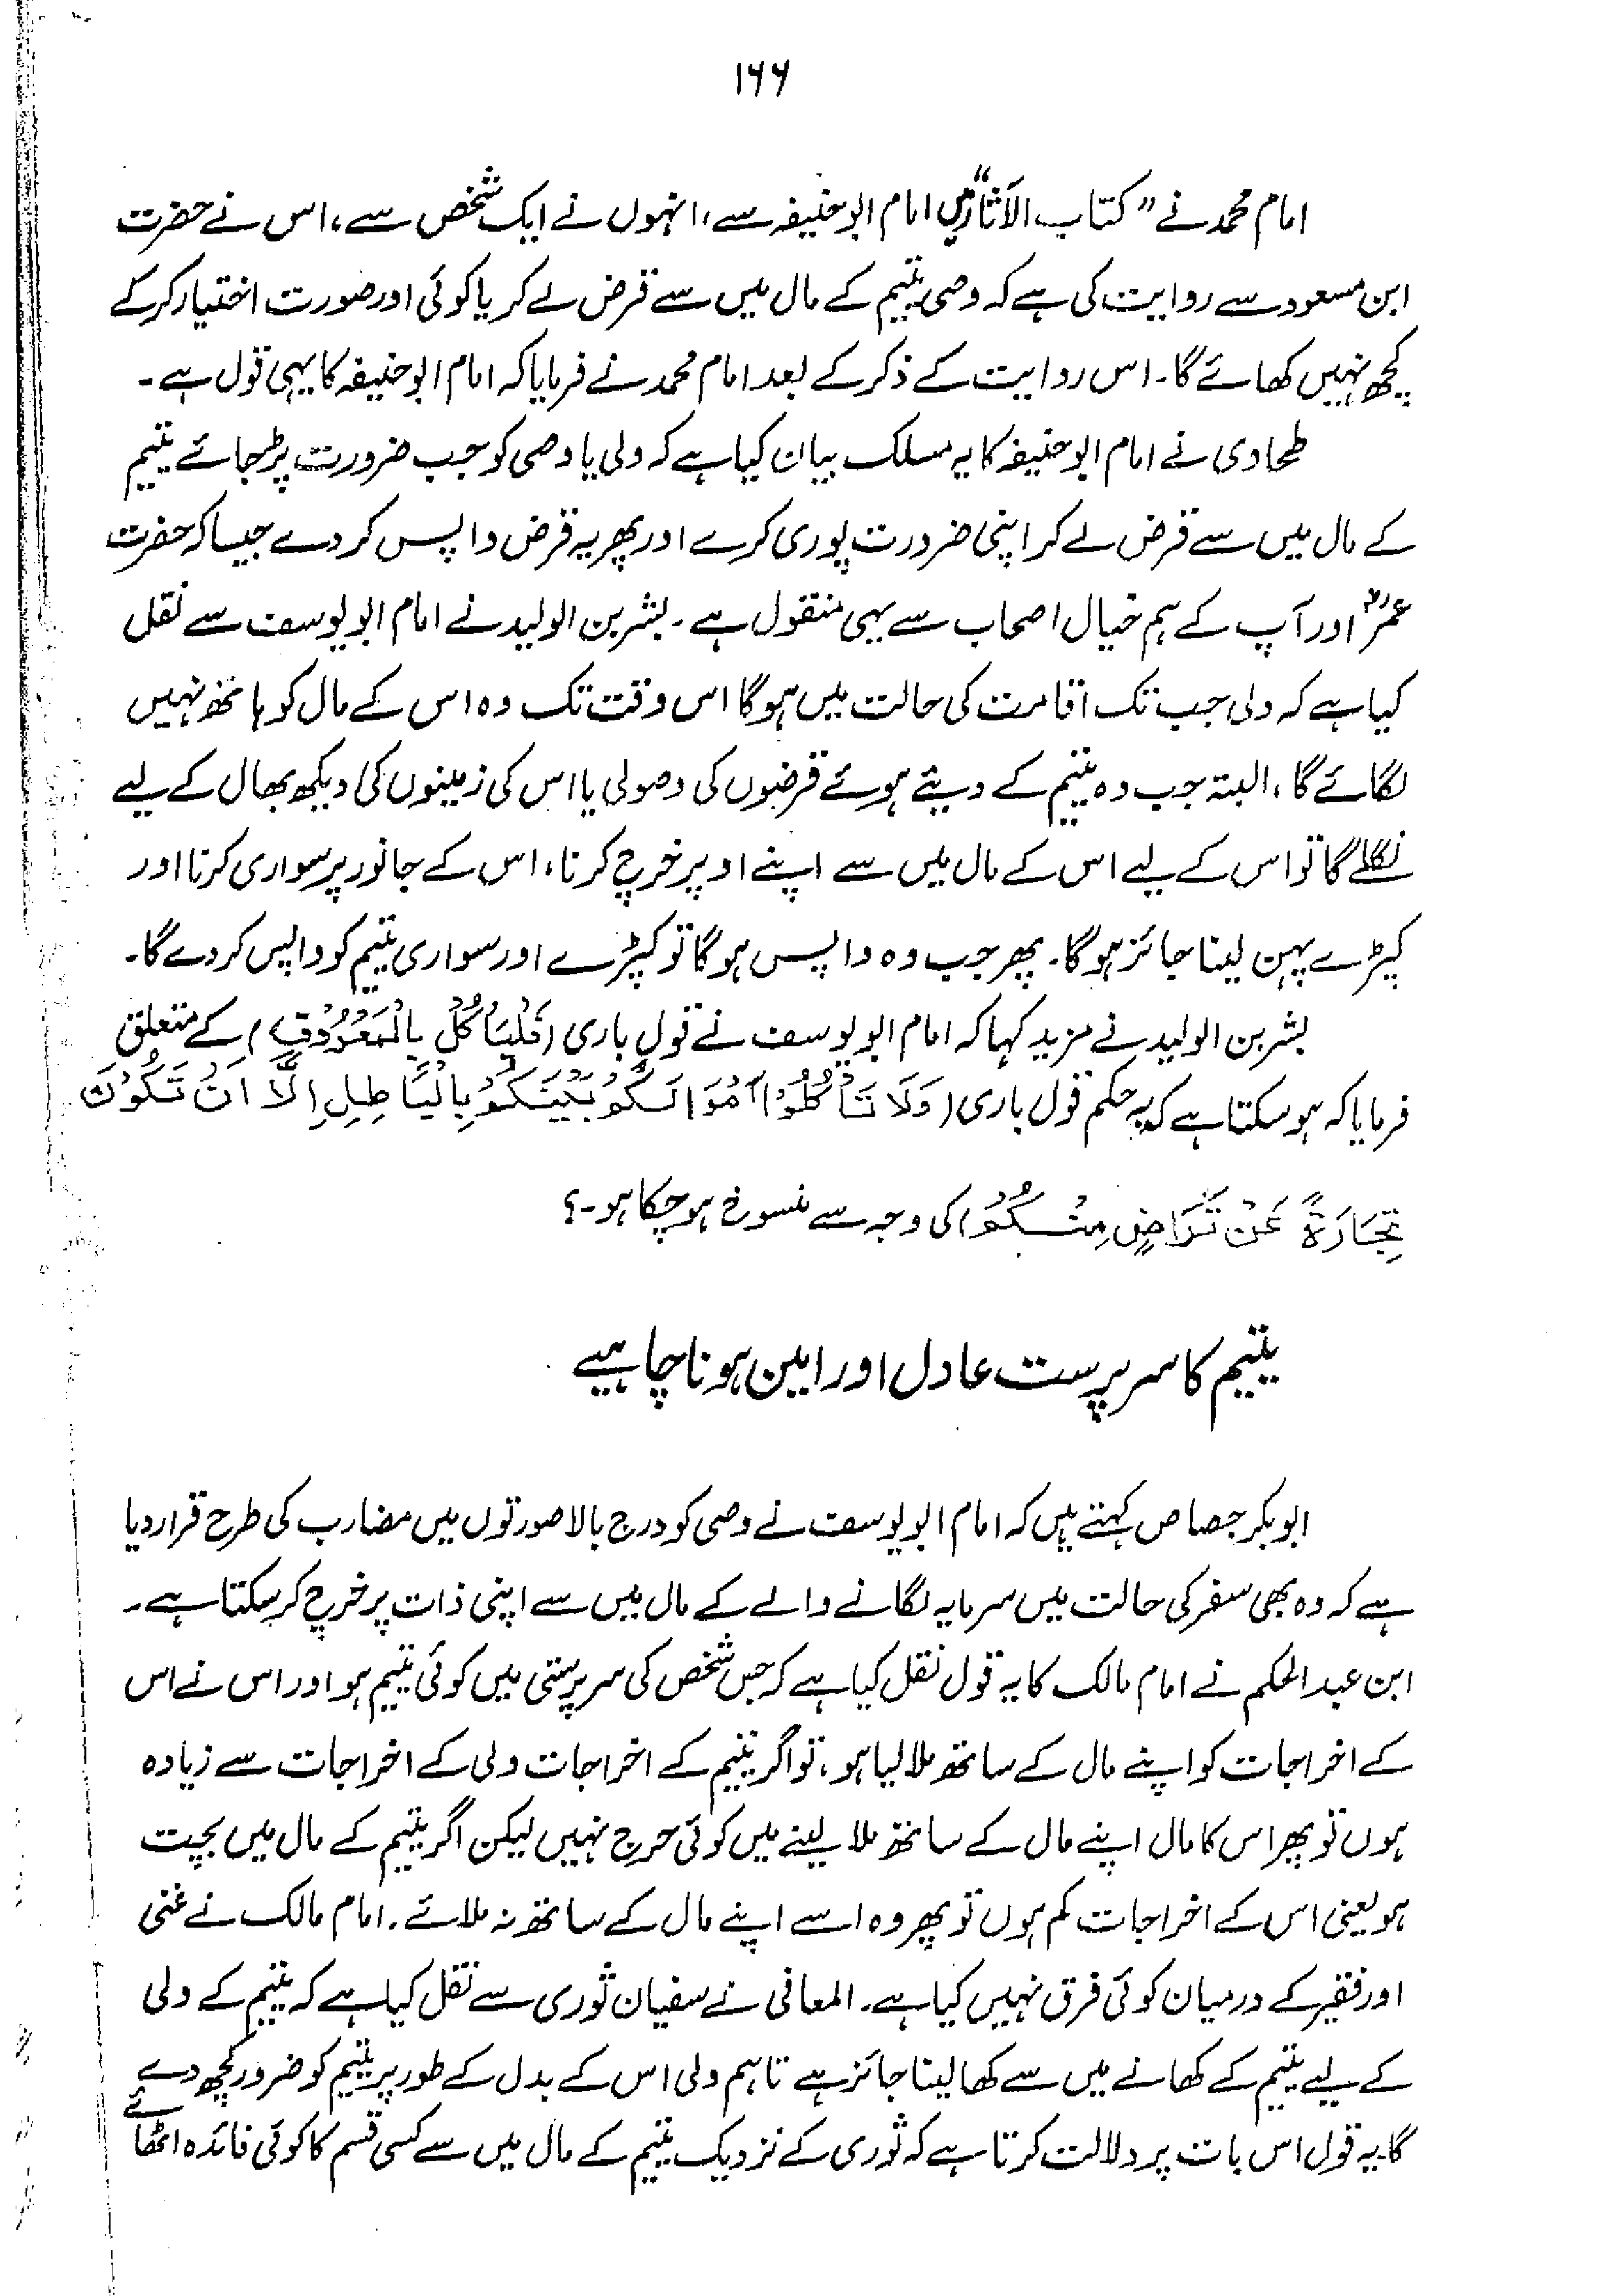 ۱۶۶
امام محمد نے "کتاب الآثار" میں امام ابوحنیفہ سے، انہوں نے ایک شخص سے، اس نے حضرت
ابن مسعود سے روایت کی ہے کہ وصی یتیم کے مال میں سے قرض لے کر یا کوئی اور صورت اختیار کرکے
کچھ نہیں کھائے گا۔ اس روایت کے ذکر کے بعد امام محمد نے فرمایا کہ امام ابوحنیفہ کا یہی قول ہے۔
طحاوی نے امام ابوحنیفہ کا یہ مسلک بیان کیا ہے کہ ولی یا وصی کو جب ضرورت پڑجائے یتیم
کے مال میں سے قرض لے کر اپنی ضرورت پوری کرے اور پھر یہ قرض واپس کردے جیسا کہ حضرت
عمرؓ اور آپ کے ہم خیال اصحاب سے یہی منقول ہے۔ بشر بن الولید نے امام ابویوسف سے نقل
کیا ہے کہ ولی جب تک اقامت کی حالت میں ہوگا اس وقت تک وہ اس کے مال کو ہاتھ نہیں
لگائے گا، البتہ جب وہ یتیم کے دیئے ہوئے قرضوں کی وصولی یا اس کی زمینوں کی دیکھ بھال کے لیے
نکلے گا تو اس کے لیے اس کے مال میں سے اپنے اوپر خرچ کرنا، اس کے جانور پر سواری کرنا اور
کپڑے پہن لینا جائز ہوگا۔ پھر جب وہ واپس ہوگا تو کپڑے اور سواری یتیم کو واپس کردے گا۔
بشر بن الولید نے مزید کہا کہ امام ابویوسف نے قول باری (فَلْيَأْكُلْ بِالْمَعْرُوْفِ) کے متعلق
فرمایا کہ ہوسکتا ہے کہ یہ حکم قول باری (وَلَا تَأْكُلُوْا اَمْوَالَكُمْ بَيْنَكُمْ بِالْبَاطِلِ اِلَّا اَنْ تَكُوْنَ
تِجَارَةً عَنْ تَرَاضٍ مِنْكُمْ) کی وجہ سے منسوخ ہوچکا ہو۔؟
یتیم کا سرپرست عادل اور امین ہونا چاہیے
ابوبکر جصاص کہتے ہیں کہ امام ابویوسف نے وصی کو درج بالا صورتوں میں مضارب کی طرح قرار دیا
ہے کہ وہ بھی سفر کی حالت میں سرمایہ لگانے والے کے مال میں سے اپنی ذات پر خرچ کرسکتا ہے۔
ابن عبدالحکم نے امام مالک کا یہ قول نقل کیا ہے کہ جس شخص کی سرپرستی میں کوئی یتیم ہو اور اس نے اس
کے اخراجات کو اپنے مال کے ساتھ ملا لیا ہو، تو اگر یتیم کے اخراجات ولی کے اخراجات سے زیادہ
ہوں تو پھر اس کا مال اپنے مال کے ساتھ ملا لینے میں کوئی حرج نہیں لیکن اگر یتیم کے مال میں بچت
ہو یعنی اس کے اخراجات کم ہوں تو پھر وہ اسے اپنے مال کے ساتھ نہ ملائے۔ امام مالک نے غنی
اور فقیر کے درمیان کوئی فرق نہیں کیا ہے۔ المعافی نے سفیان ثوری سے نقل کیا ہے کہ یتیم کے ولی
کے لیے یتیم کے کھانے میں سے کھا لینا جائز ہے تاہم ولی اس کے بدل کے طور پر یتیم کو ضرور کچھ دے
گا یہ قول اس بات پر دلالت کرتا ہے کہ ثوری کے نزدیک یتیم کے مال میں سے کسی قسم کا کوئی فائدہ اٹھائے